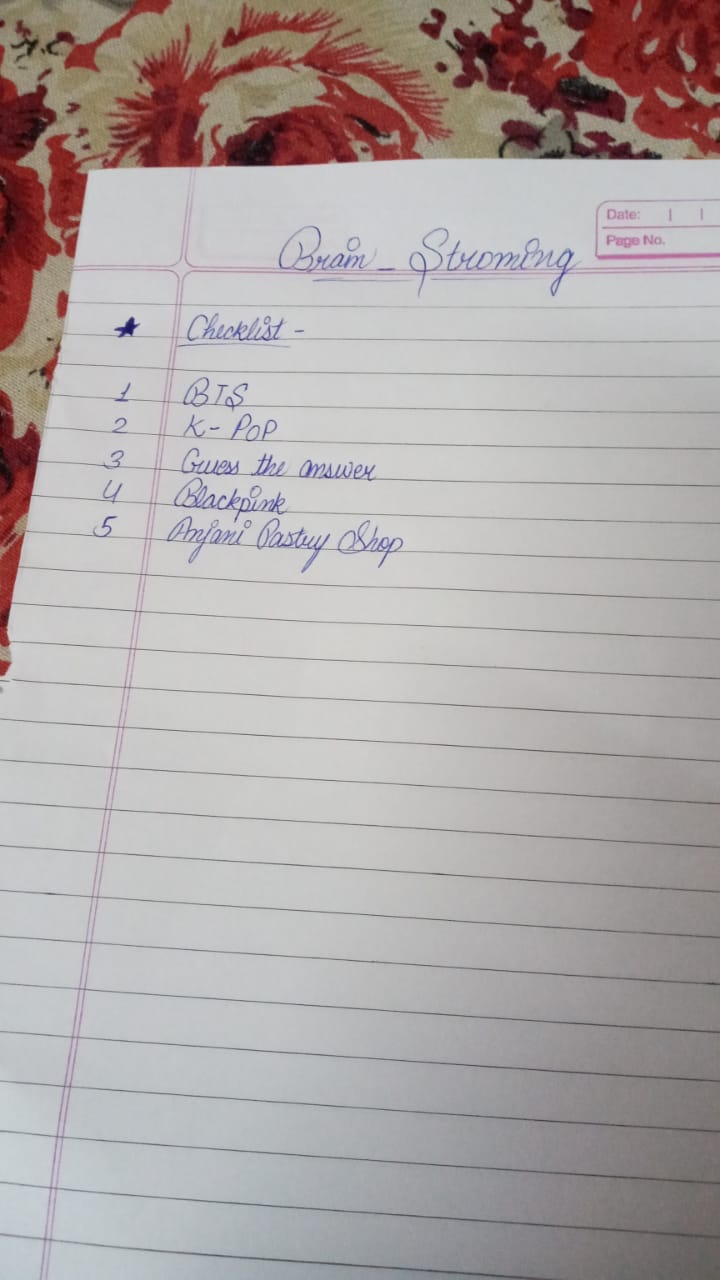 Date: | |
Page No.
Brain - Stroming
★ Checklist -
1 BTS
2 K-POP
3 Guess the answer
4 Blackpink
5 Anjani Pastry Shop